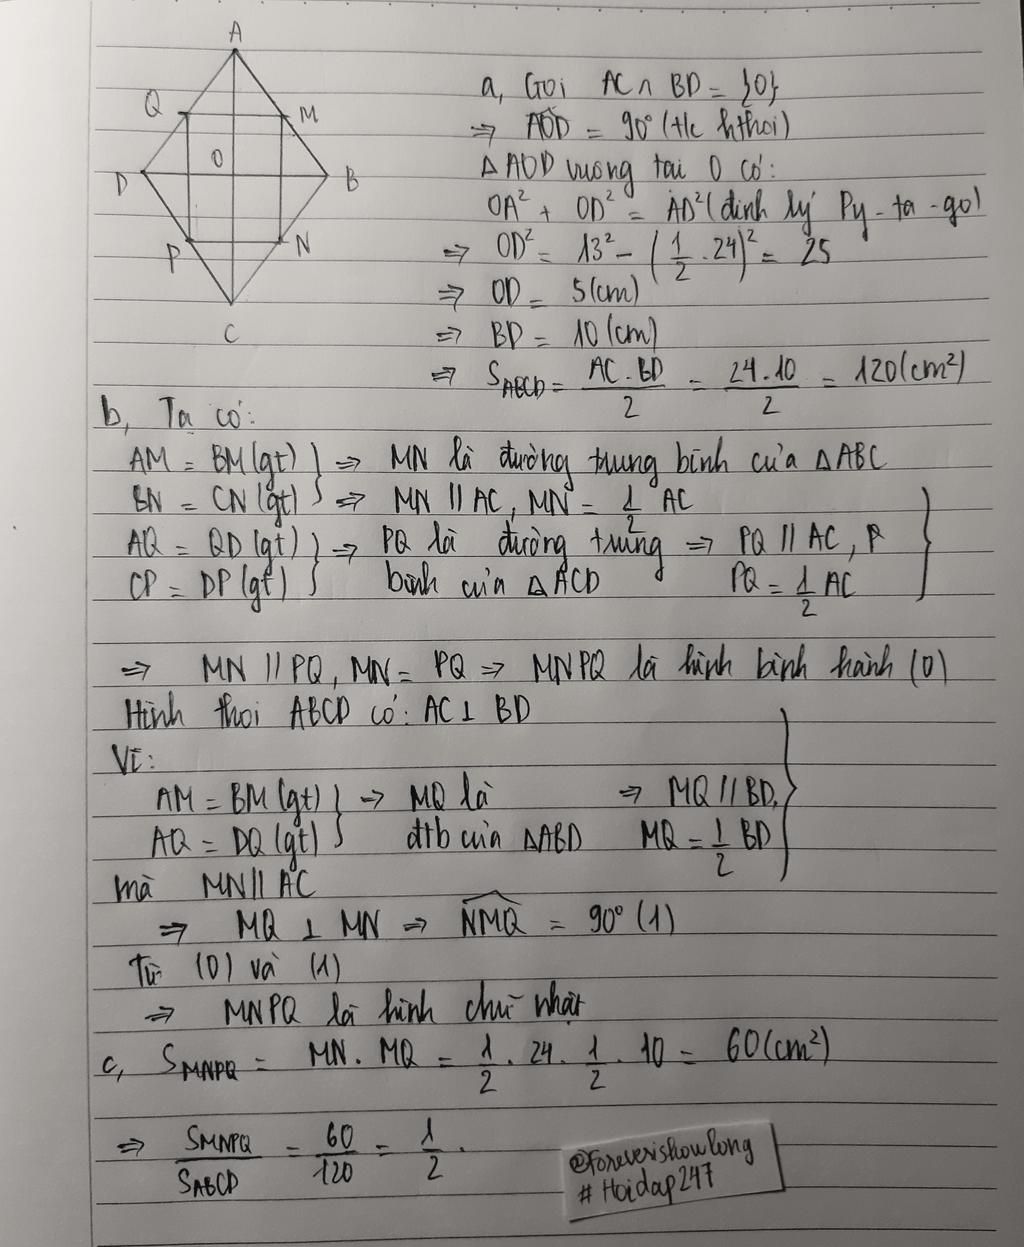 A
Q
M
O
D
B
P
N
C
a, Gọi AC ∩ BD = {O}
⇒ AÔD = 90° (t/c hthoi)
∆AOD vuông tại O có:
OA² + OD² = AD² (định lý Py-ta-go)
⇒ OD² = 13² - (1/2 . 24)² = 25
⇒ OD = 5 (cm)
⇒ BD = 10 (cm)
⇒ S_ABCD = AC . BD / 2 = 24 . 10 / 2 = 120 (cm²)
b, Ta có:
AM = BM (gt) } ⇒ MN là đường trung bình của ∆ABC
BN = CN (gt) ⇒ MN // AC, MN = 1/2 AC
AQ = QD (gt) } ⇒ PQ là đường trung ⇒ PQ // AC, P
CP = DP (gt) bình của ∆ACD PQ = 1/2 AC }
⇒ MN // PQ, MN = PQ ⇒ MNPQ là hình bình hành (0)
Hình thoi ABCD có: AC ⊥ BD
Vì:
AM = BM (gt) } ⇒ MQ là ⇒ MQ // BD,
AQ = DQ (gt) đtb của ∆ABD MQ = 1/2 BD }
mà MN // AC
⇒ MQ ⊥ MN ⇒ \widehat{NMQ} = 90° (1)
Từ (0) và (1)
⇒ MNPQ là hình chữ nhật
c, S_MNPQ = MN . MQ = 1/2 . 24 . 1/2 . 10 = 60 (cm²)
⇒ S_MNPQ / S_ABCD = 60 / 120 = 1/2 .
@Foreverishowlong
# Hoidap247